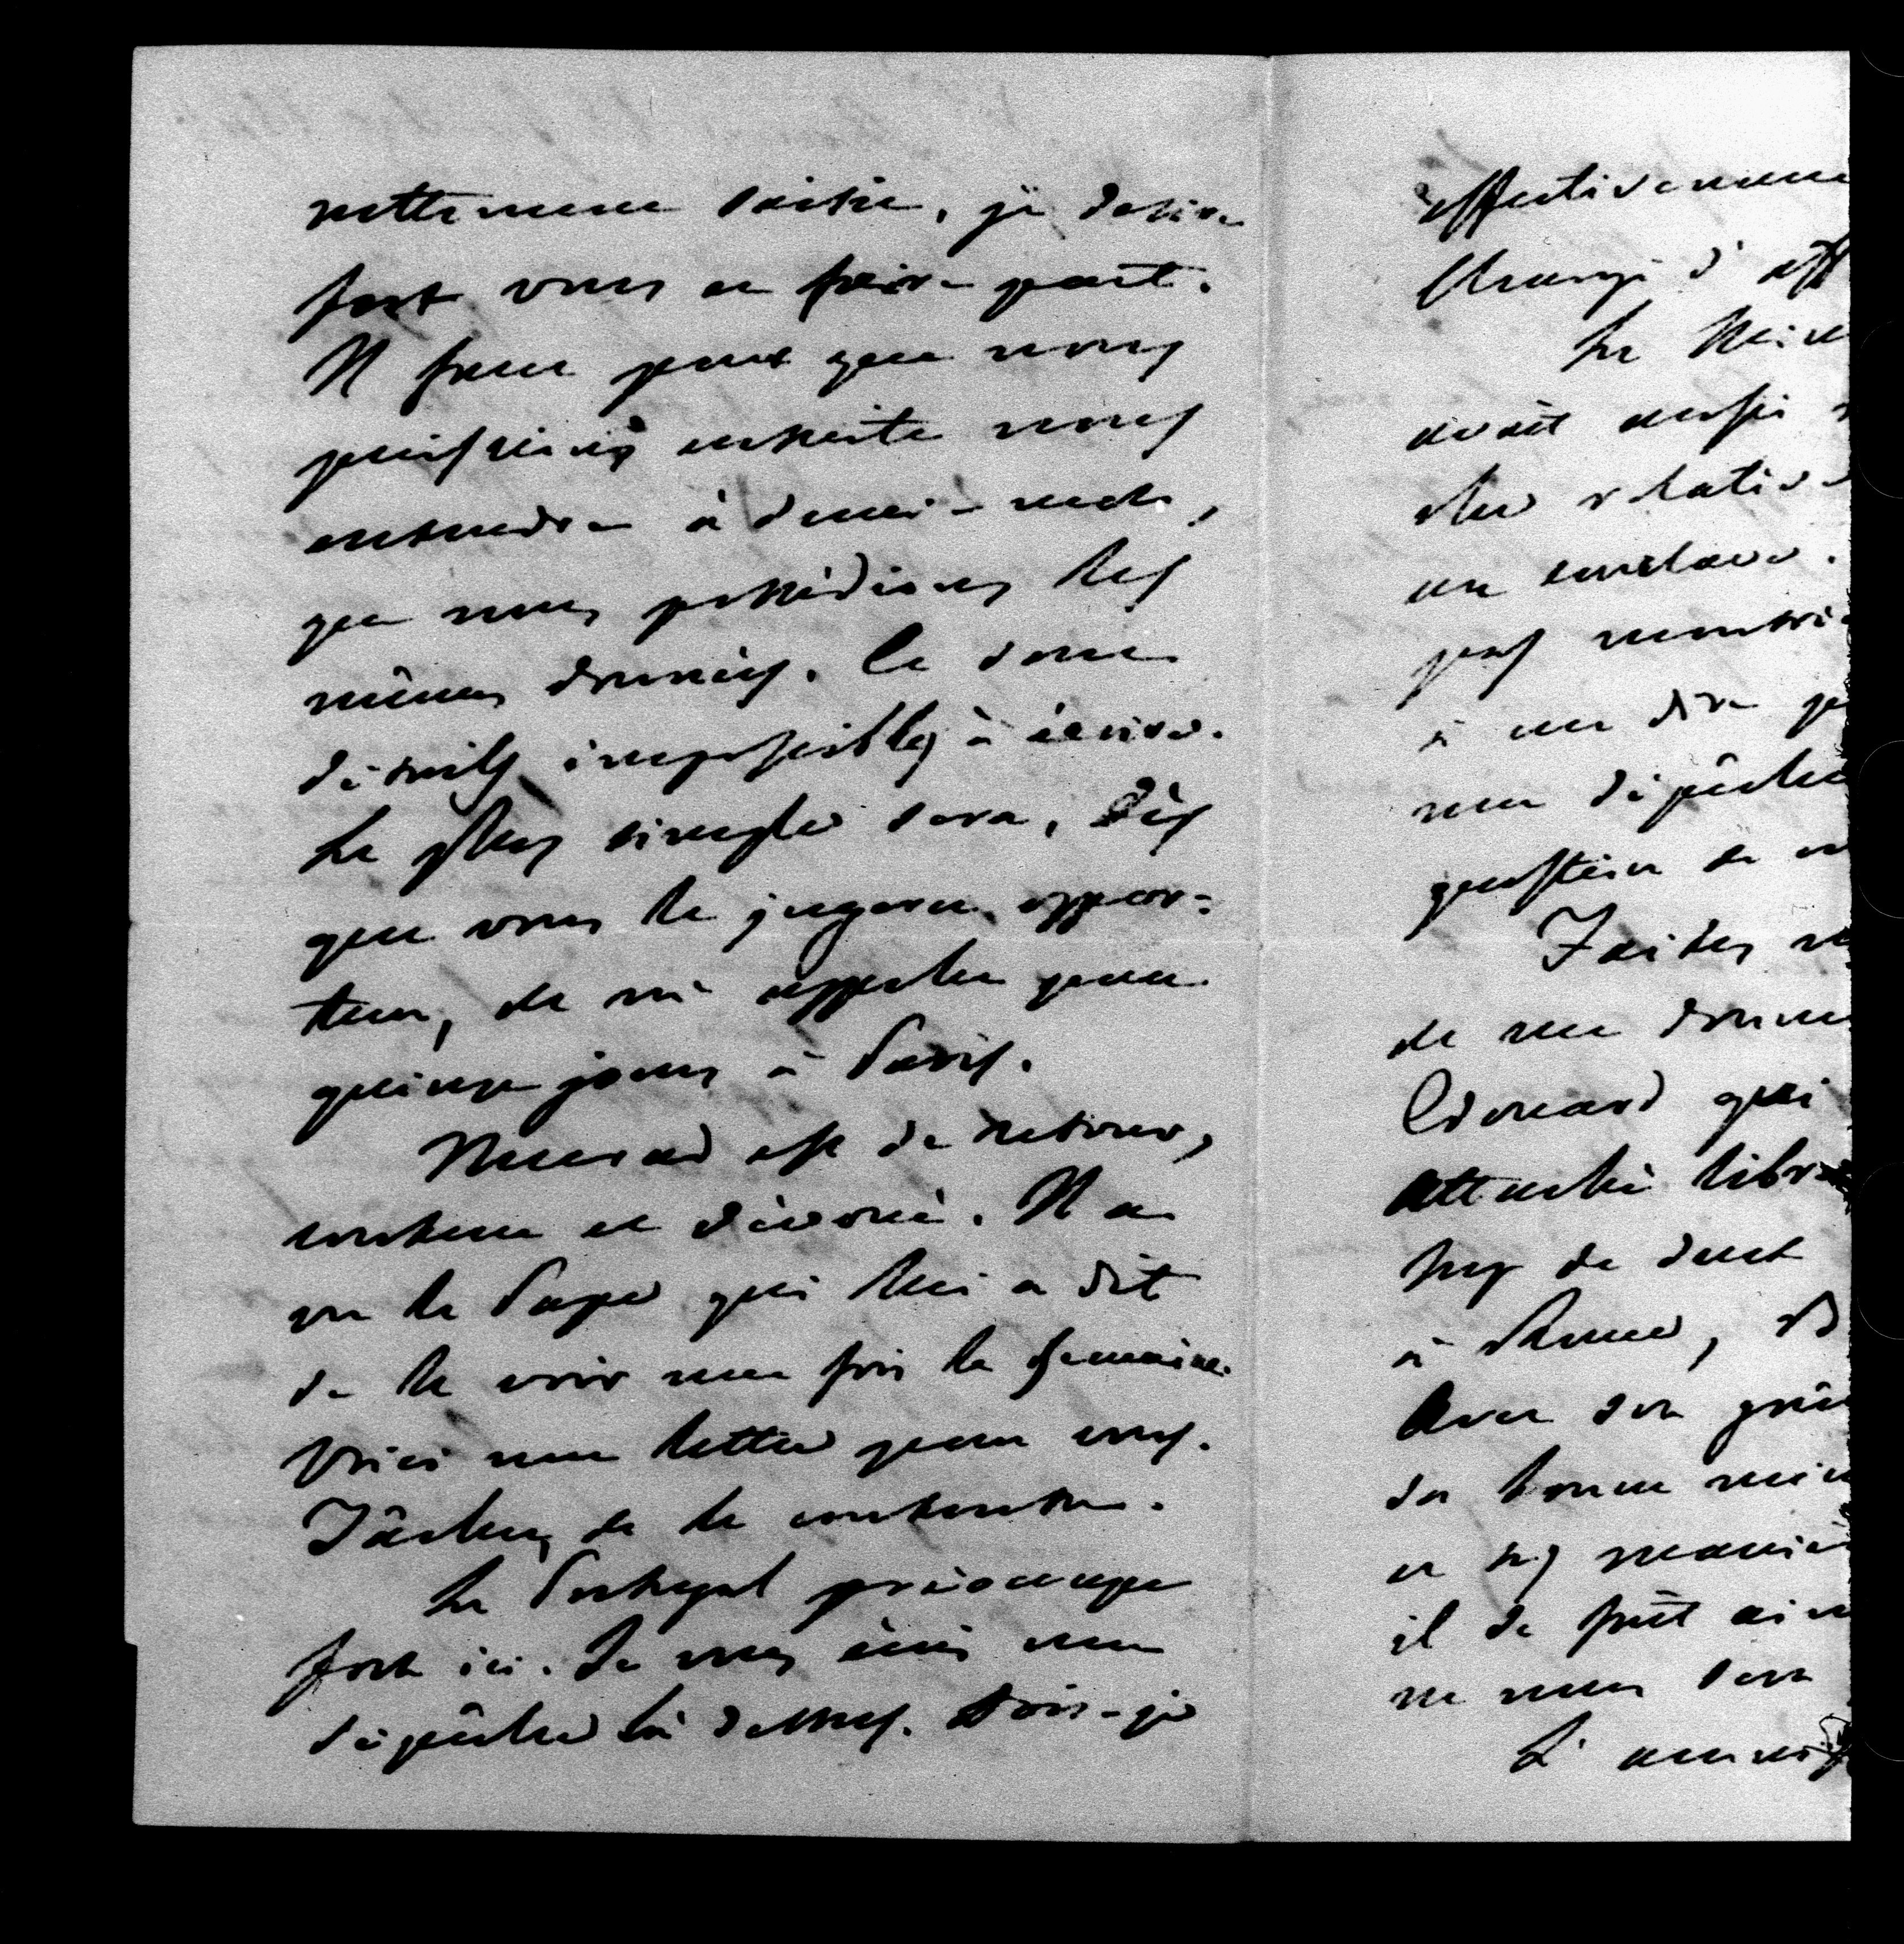 nettement saisie, je désire
fort vous en faire part.
Il faut pour que nous
puissions ensuite nous
entendre à demi-mots,
que nous possédions les
mêmes données. Ce sont
détails impossibles à écrire.
Le plus simple sera, dès
que vous le jugerez oppor-
tun, de m'appeler pour
quinze jours à Paris.
est de retour,
content et dévoué. Il a
vu le Pape qui lui a dit
de le voir une fois la semaine.
Voici une lettre pour vous.
Tâchez de le contenter.
Le Portugal préoccupe
fort ici. Je vous écris une
dépêche là dessus. Dois-je
effectivement
d'aff
Le
avait aussi
relative
un
pas
à me dire
une dépêche
question de
Faites
de me donner
Edouard qui
attaché libre
de
à Rome,
Avec son
sa bonne
et ses
il se fût
ne nous sera
L'